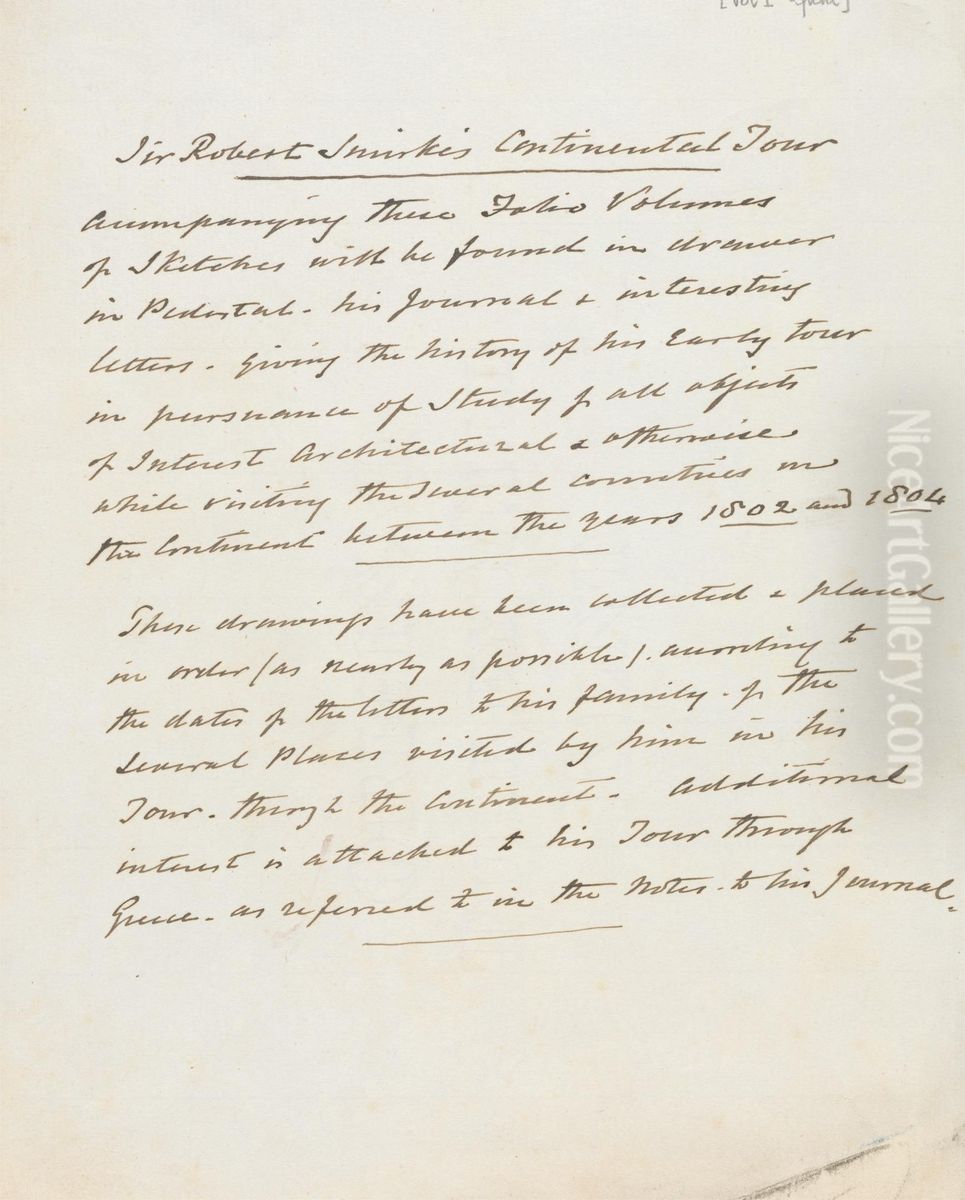 [Vol I
Sir Robert Smirke's Continental Tour
Accompanying these Folio Volumes
of Sketches will be found in drawer
in Pedestal - his Journal & interesting
letters - giving the history of his Early tour
in pursuance of Study of all objects
of Interest Architectural & otherwise
while visiting the Several countries in
the Continent between the years 1802 and 1804
These drawings have been collected & placed
in order (as nearly as possible). according to
the dates of the letters to his family - of the
Several Places visited by him in his
Tour - through the Continent - Additional
interest is attached to his Tour through
Greece - as referred to in the Notes - to his Journal -
NiceArtGallery.com